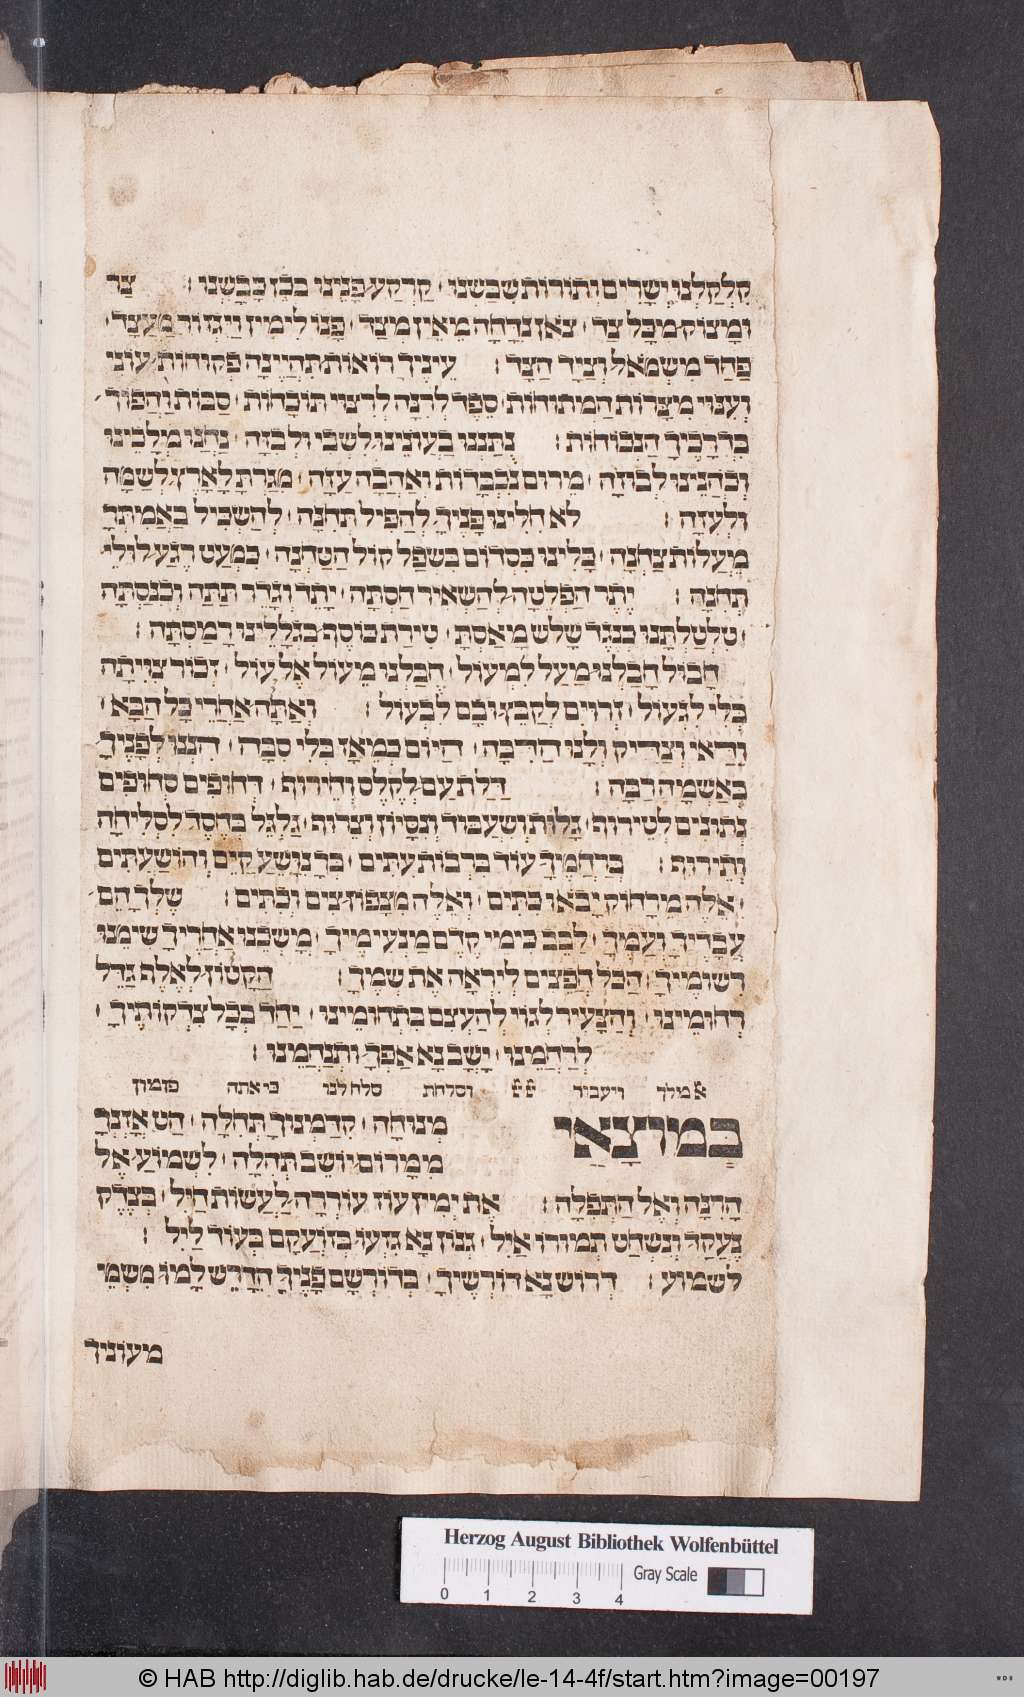 קלקלנו ישרים ותורות שבשנו · קדקע פנינו בכן כבשנו : צר
ומצוק מכל צד · צאן נדחה מאין מצד · פנו לימין ויגזור מעצד ·
פחד משמאל וציד הצד : עיניך רואות תהיינה פקוחות · עוני
וענויי מצרות המתוחות · ספר לרנה לרצוי תוכחות · סבות והפוך
כדרכיך הנכוחות : נתננו בעונינו לשבי ולבזה · נדנו מלבינו
וכהנינו לבוזה · מרום נכבדות ואהבה עזה · מגרת לארץ לשמה
ולעזה : לא חלינו פניך להפיל תחנה · להשכיל באמתך
מעלות צחנה · כלינו בסדום בשפל קול הטחנה · כמעט רגע לולי
תחנה : יתר הפלטה להשאיר חסתה · יתד וגדר תתה וכנסתה
· טלטלתנו כנגד שלש מאסת · טירת כוסף בגלילינו רמסתה :
חבול חבלנו מעל למעול · חבלנו מעול אל עול · זכור ציויתה
כלי לגעול · זרוים לקבץ ובם לבעול : ואתה אחרי כל הבא ·
ודאי וצדיק ולנו הדבה · היום כמאז בלי סבה · הננו לפניך
באשמה רבה : דלת עם לקלס וחירוף · דחופים סחופים
נתונים לטירוף · גלות ושעבוד ונסיון וצרוף · גלגל בחסד לסליחה
ותירוף : ברחמיך עוד ברבות עתים · ברצ נושע קיים והושעתים
· אלה מרחוק יבאו בתים · ואלה מצפון צים וכתים : שלך הם
עבדיך ועמך · לבב כימי קדם מנעימיך · משכנו אחריך שימנו
רשומיך · הכל חפצים ליראה את שמיך : הקטון לאלף גדל
רחומינו · והצעיר לגוי להעצם בתחומינו · יחד בכל צדקותיך ·
לרחמנו · ישב נא אפך ותנחמנו :
א מלך ויעבור וסלחת סלח לנו כי אתה פזמון
במוצאי
מנוחה · קדמנוך תחלה · הט אזנך
ממרום יושב תהלה · לשמוע אל
הרנה ואל התפלה : את ימין עוז עוררה לעשות חיל · בצדק
נעקד ונשחט תמורו איל · גנון נא גזעו בזועקם בעוד ליל :
לשמוע : דרוש נא דורשיך · בדורשם פניך הדרש למו משמי
מעוניך
Herzog August Bibliothek Wolfenbüttel
0 1 2 3 4 Gray Scale
© HAB http://diglib.hab.de/drucke/le-14-4f/start.htm?image=00197